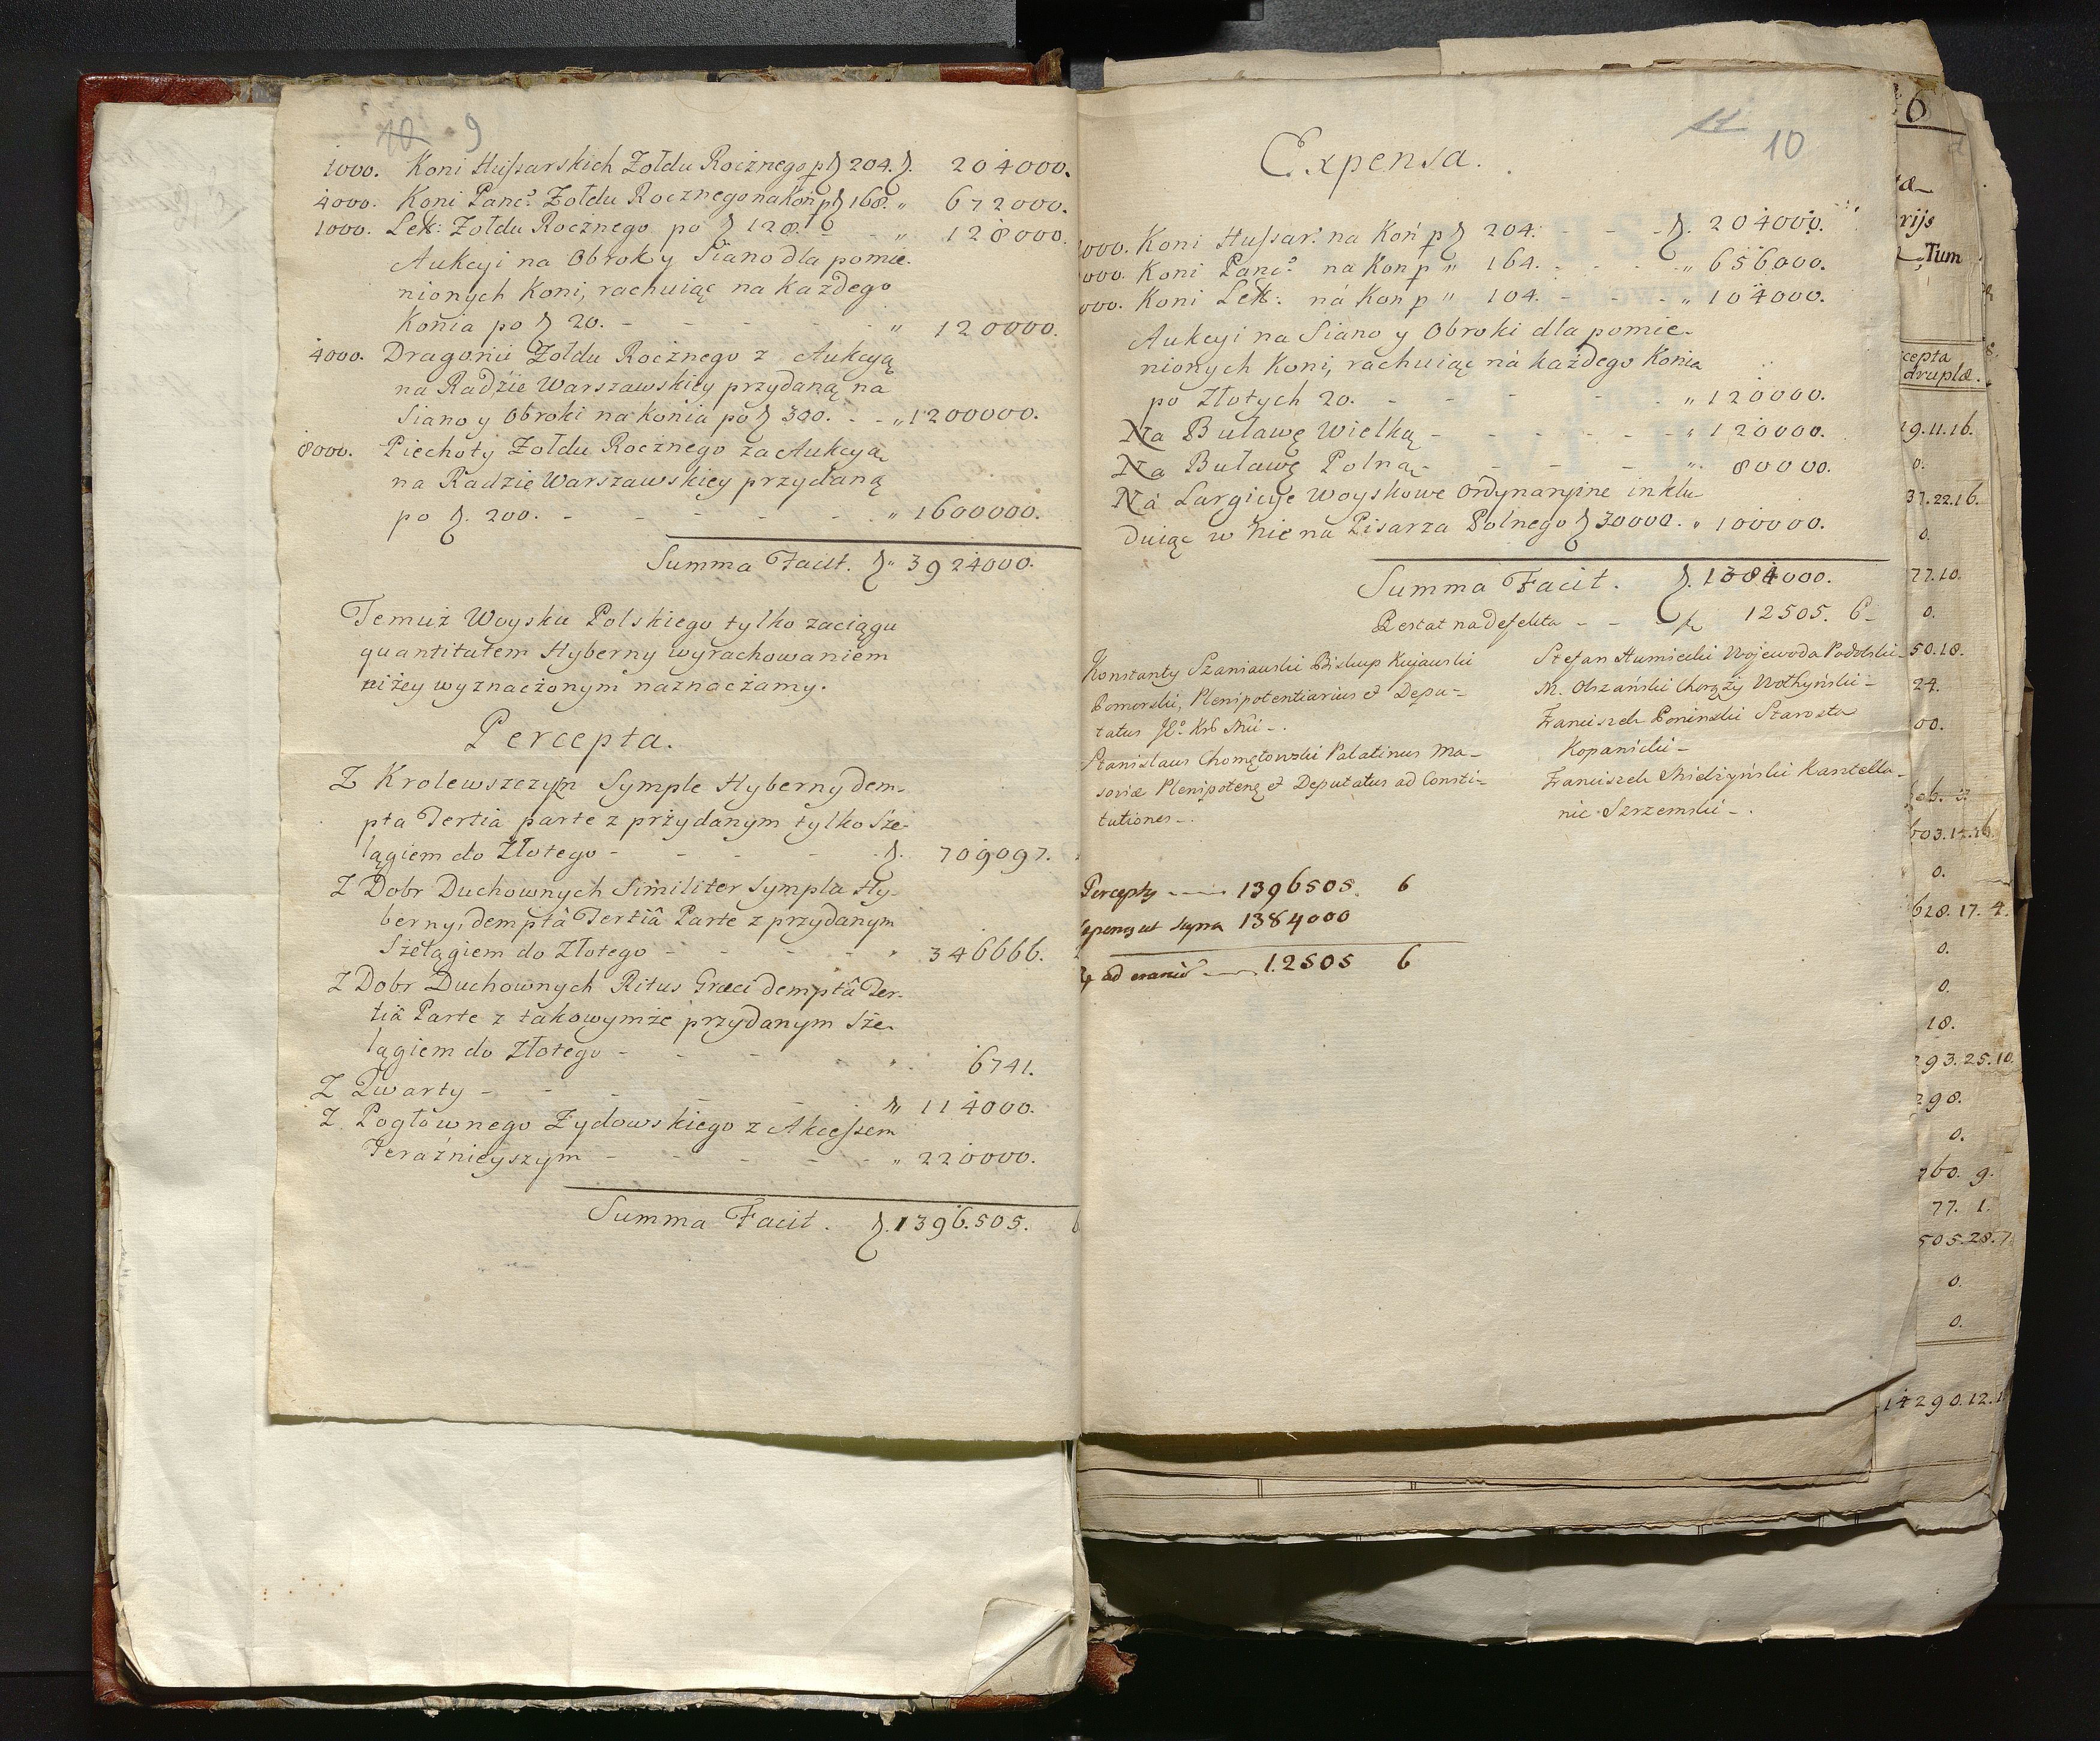 10 9
1000. Koni Hussarskich Zołdu Rocżnego p 204. 204000.
4000. Koni Panc: Zołdu Rocznego na Koń p 168. „ 672000.
1000. Lek: Zołdu Rocżnego po 128. „ 128000.
Aukcyi na Obrok y Siano dla pomie-
nionych Koni, rachuiąc na Każdego
Konia po 20. „ 120000.
4000. Dragonii Zołdu Rocżnego z Aukcyą
na Radżie Warszawskiey przydaną na
Siano y Obroki na Konia po 300. „ 1200000.
8000. Piechoty Zołdu Rocżnego za Aukcyą
na Radzie Warszawskiey przydaną
po 200. „ 1600000.
Summa Facit. „ 3924000.
Temuż Woysku Polskiego tylko zaciągu
quantitatem Hyberny wyrachowaniem
niżey wyznaczonym naznacżamy.
Percepta.
Z Krolewszczyzn Symple Hyberny dem-
pta Tertia parte z przydanym tylko Sze-
lągiem do Złotego 709097.
Z Dobr Duchownych Similiter Sympla Hy-
berny, demptâ Tertiâ Parte z przydanym
Szelągiem do Złotego „ 346666.
Z Dobr Duchownych Ritus Græci demptâ Ter-
tiâ Parte z takowymże przydanym Sze-
lągiem do Złotego „ 6741.
Z Kwarty „ 114000.
Z Pogłownego Żydowskiego z Akcessem
Teraźnieyszym „ 220000.
Summa Facit. 1396.505. 6
11 10
Expensa.
000. Koni Hussar: na Koń p 204. 204000.
000. Koni Panc: na Kon p „ 164. „ 656000.
000. Koni Lek: ná Kon p „ 104. „ 104000.
Aukcyi na Siano y Obroki dla pomie-
nionych Koni, rachuiąc ná każdego Konia
po Złotych 20. „ 120000.
Na Buławę Wielką „ 120000.
Na Buławę Polną „ 80000.
Ná Largicye Woyskowe Ordynaryine inklu-
duiąc w nie ná Pisarza Polnego 30000. „ 100000.
Summa Facit. 1384000.
Restat na defekta 12505. 6
Konstanty Szaniawski Biskup Kujawski
Pomorski, Plenipotentiarius et Depu-
tatus
Stanislaus Chomętowski Palatinus Ma-
soviæ Plenipoten et Deputatus ad Consti-
tutiones
Stefan Humiecki Wojewoda Podolski
M. Olszański Chorąży Wołhyński
Franciszek Poninski Starosta
Kopanicki
Franciszek Kasztella-
nic Szrzemski
Percepty 1396505 6
ut supra 1384000
12505 6
6
rijs
Tum
cepta
druplæ.
9.11.16.
0.
37.22.16.
0.
77.10.
0.
50.18.
24.
00.
0.
628.17.4.
0.
0.
18.
293.25.10.
298.
0.
760. 9.
77. 1.
505.28.7
0.
0.
14290.12.